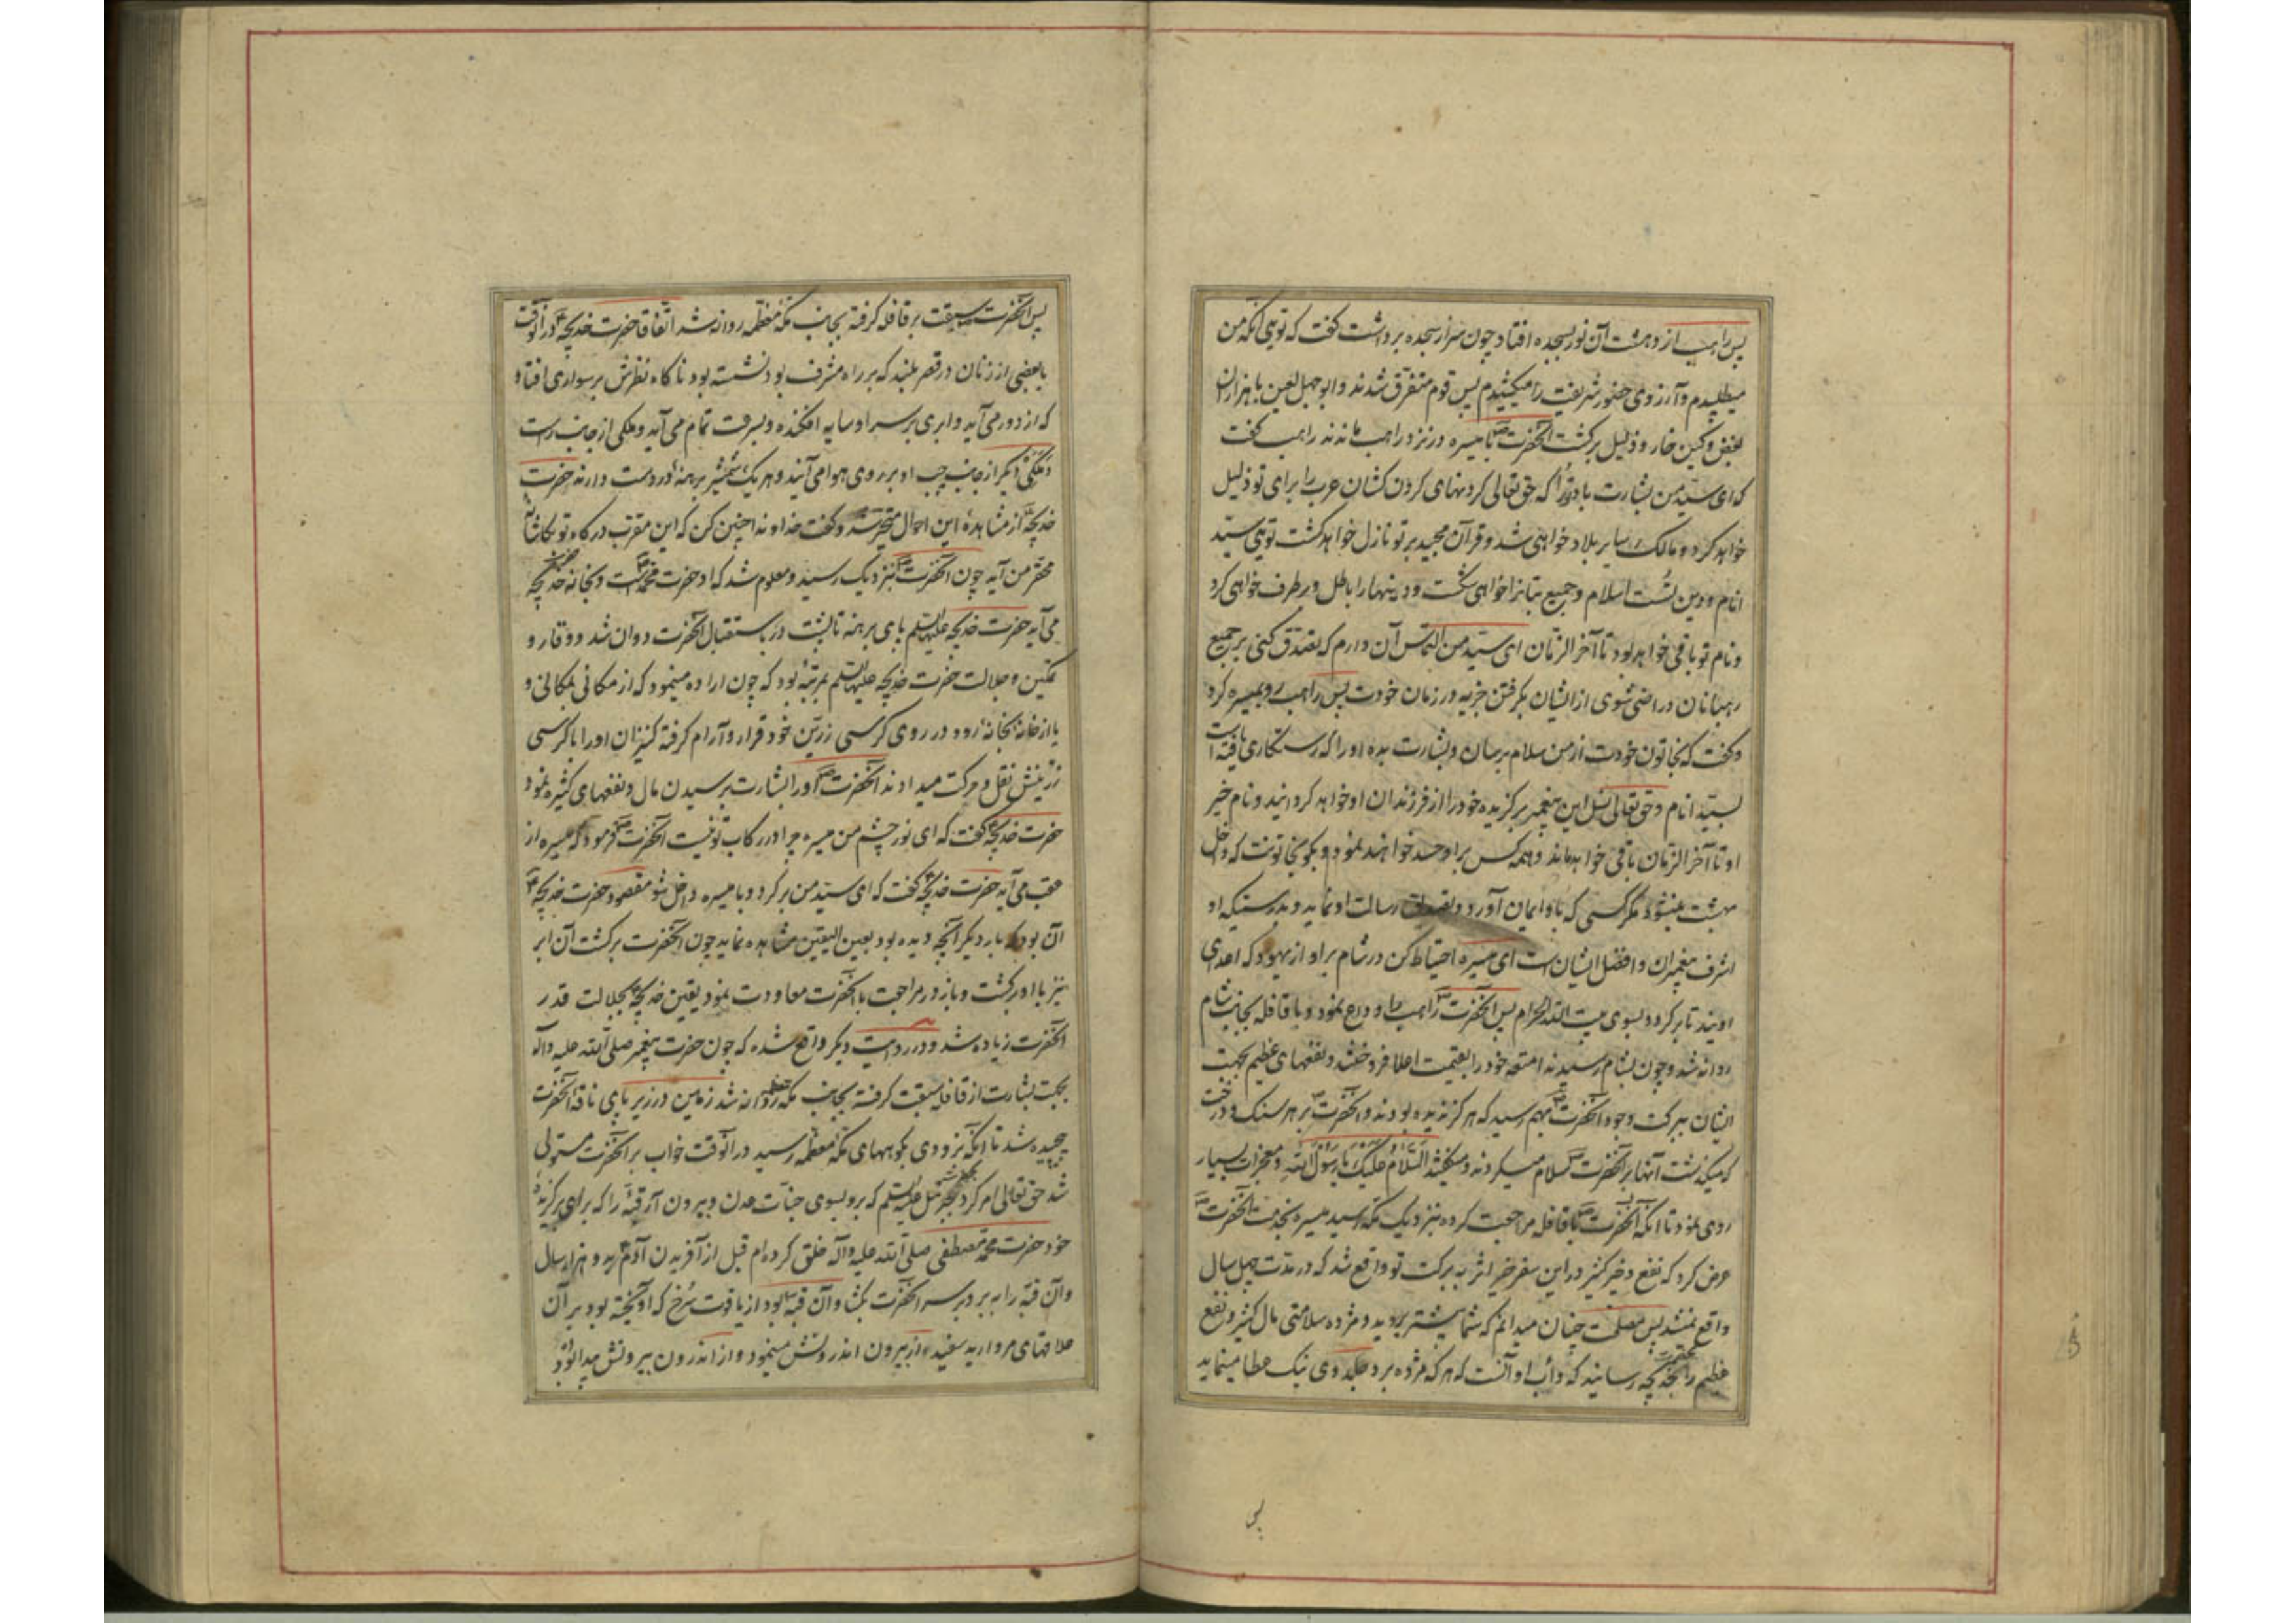 پس راهب از دهشت آن نور بسجده افتاد چون سر از سجده برداشت گفت که توئی آنکه من
میطلبیدم و آرزوی حضور شریفت را میکشیدم پس قوم متفرق شدند و ابوجهل لعین با هزاران
بغض و کین خار و ذلیل برگشت آنحضرت ص با میسره در نزد راهب ماندند راهب گفت
که ای سیّد من بشارت باد تُرا که حق تعالی گردنهای گردن کشان عرب را برای تو ذلیل
خواهد کرد و مالک سایر بلاد خواهی شد و قرآن مجید بر تو نازل خواهد گشت توئی سیّد
انام و دین تُست اسلام و جمیع بتانرا خواهی شکست و دینها را باطل و برطرف خواهی کرد
و نام تو باقی خواهد بود تا آخر الزّمان ای سیّد من التماس آن دارم که تصدّق کنی بر جمیع
رهبانان و راضی شوی از ایشان بگرفتن جزیه در زمان خودت پس راهب رو بمیسره کرد
و گفت که بخاتون خودت از من سلام برسان و بشارت بده او را که رستگاری یافته است
بسیّد انام و حق تعالی نسل این پیغمبر برگزیده خود را از فرزندان او خواهد گردانید و نام خیر
او تا آخر الزّمان باقی خواهد ماند و همه کس بر او حسد خواهند نمود و بگو بخاتونت که داخل
بهشت نمیشود مگر کسی که باو ایمان آورد و تصدیق رسالت او نماید و بدرستیکه او
اشرف پیغمبران و افضل ایشان است ای میسره احتیاط کن در شام بر او از یهود که اعدای
اویند تا برگردد بسوی بیت الله الحرام پس آنحضرت ص راهب را وداع نمود و با قافله بجانب شام
روانه شد و چون بشام رسیدند امتعه خود را بقیمت اعلا فروختند و نفعهای عظیم بجهت
ایشان ببرکت وجود آنحضرت ص بهم رسید که هرگز ندیده بودند و آنحضرت بر هر سنک و درخت
که میگذشت آنها بر آنحضرت ص سلام میکردند و میگفتند السَّلامُ عَلَیْکَ یا رَسُولَ اللهِ و معجزات بسیار
روی نمود تا آنکه آنحضرت ص با قافله مراجعت کرده بنزدیک مکه رسید میسره بخدمت آنحضرت ص
عرض کرد که نفع و خیر کثیر در این سفر خیر اثر به برکت تو واقع شد که در مدّت چهل سال
واقع نمیشد پس مصلحت چنان میدانم که شما پیشتر بروید و مژده سلامتی مال کثیر و نفع
عظیم را بحضرت خدیجه رسانید که دأب او آنست که هر که مژده برد بجلدوی نیک عطا مینماید
پس
پس آنحضرت سبقت بر قافله گرفته بجانب مکّه معظّمه روانه شد اتّفاقا حضرت خدیجه در آنوقت
با بعضی از زنان در قصر بلند که بر راه مشرف بود نشسته بود ناگاه نظرش بر سواری افتاد
که از دور می آید و ابری بر سر او سایه افکنده و بسرعت تمام می آید و ملکی از جانب راست
و ملکی دیگر از جانب چپ او بر روی هوا می آیند و هر یک شمشیر برهنهٔ در دست دارند حضرت
خدیجه از مشاهدهٔ این احوال متحیّر شد و گفت خداوندا چنین کن که این مقرّب درگاه تو بکاشانهٔ
محقّر من آید چون آنحضرت ص بنزدیک رسید و معلوم شد که او حضرت محمّد است و بخانه حضرت خدیجه
می آید حضرت خدیجه علیها السلم با پای برهنه تا پشت در باستقبال آنحضرت دوان شد و وقار و
تمکین و جلالت حضرت خدیجه علیها السلم بمرتبهٔ بود که چون اراده مینمود که از مکانی بمکانی و
یا از خانه بخانهٔ رود در روی کرسی زرّین خود قرار و آرام گرفته کنیزان او را با کرسی
زرّینش نقل و حرکت میدادند آنحضرت ص او را بشارت برسیدن مال و نفعهای کثیره نمود
حضرت خدیجه گفت که ای نور چشم من میسره چرا در رکاب تو نیست آنحضرت ص فرمود که میسره از
عقب می آید حضرت خدیجه گفت که ای سیّد من برگرد و با میسره داخل شو مقصود حضرت خدیجه ع
آن بود که بار دیگر آنچه دیده بود بعین الیقین مشاهده نماید چون آنحضرت برگشت آن ابر
نیز با او برگشت و باز در مراجعت با آنحضرت معاودت نمود یقین خدیجه بجلالت قدر
آنحضرت زیاده شد و در روایت دیگر واقع شده که چون حضرت پیغمبر صلّی الله علیه و آله
بجهت بشارت از قافله سبقت گرفته بجانب مکه معظمه روانه شد زمین در زیر پای ناقهٔ آنحضرت
پیچیده شد تا آنکه بزودی بکوههای مکّه معظّمه رسید در آنوقت خواب بر آنحضرت مستولی
شد حق تعالی امر کرد بجبرئیل علیه السلم که برو بسوی جنّات عدن و بیرون آر قبّهٔ را که برای برگزیدهٔ
خود حضرت محمّد مصطفی صلی الله علیه و آله خلق کرده ام قبل از آفریدن آدم بدو هزار سال
و آن قبّه را ببر و بر سر آنحضرت بگشا و آن قبّه بود از یاقوت سُرخ که آویخته بود بر آن
علاقهای مروارید سفید از بیرون اندرونش مینمود و از اندرون بیرونش پیدا بود